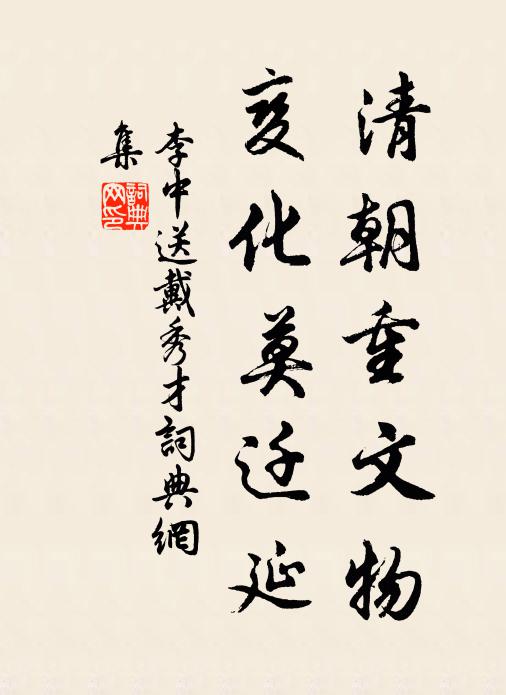 清朝重文物
变化莫迁延
李中送戴秀才詞典網
集
詞典
网印